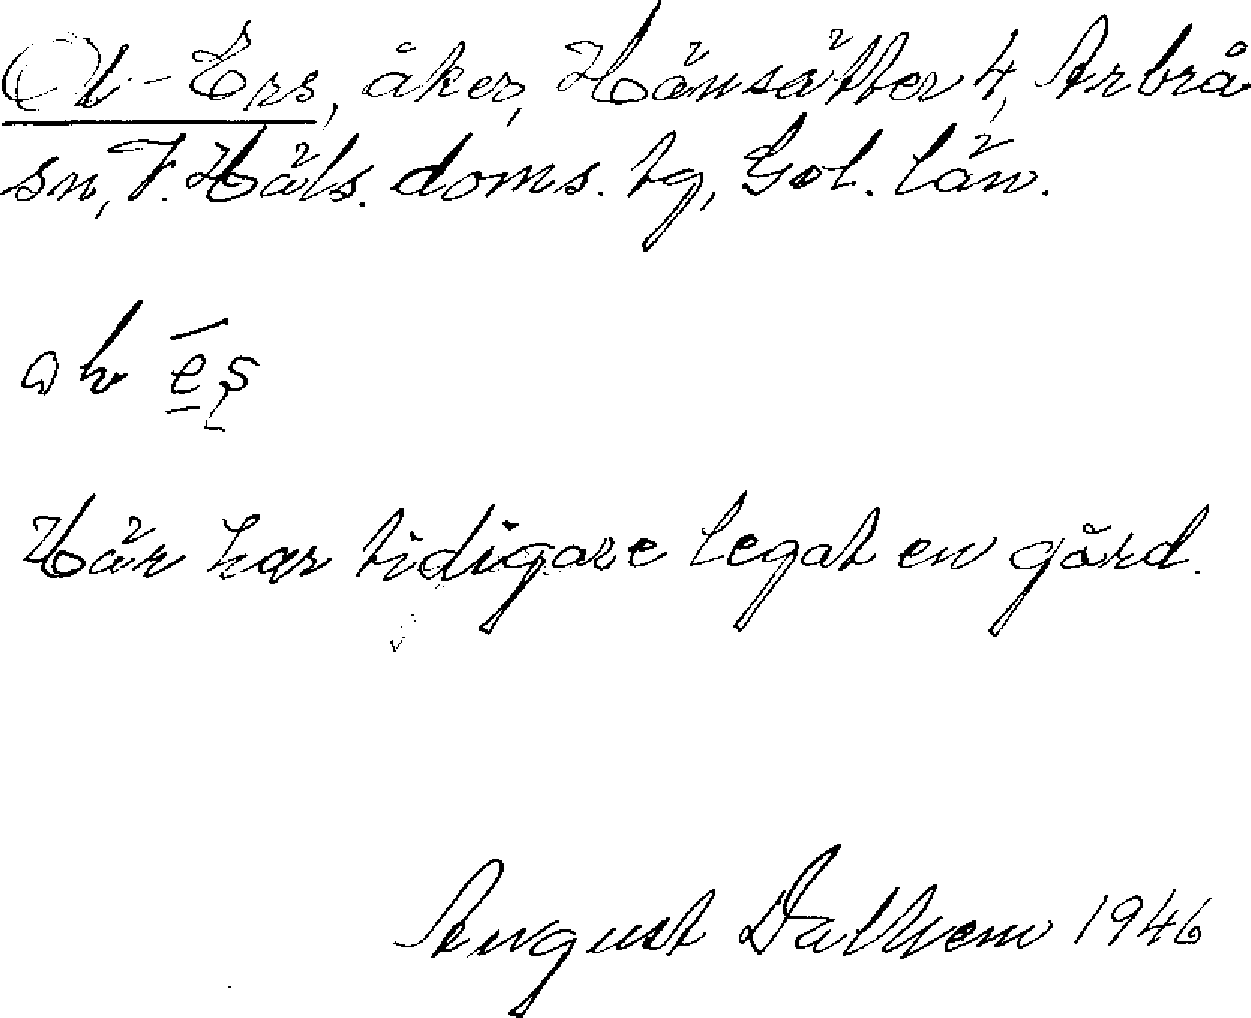 Ol-Ers, åker, Hänsätter 4, Arbrå
sn, V. Häls. doms. tg, Gvl. län.
Här har tidigare legat en gård.
August Dalhem 1946